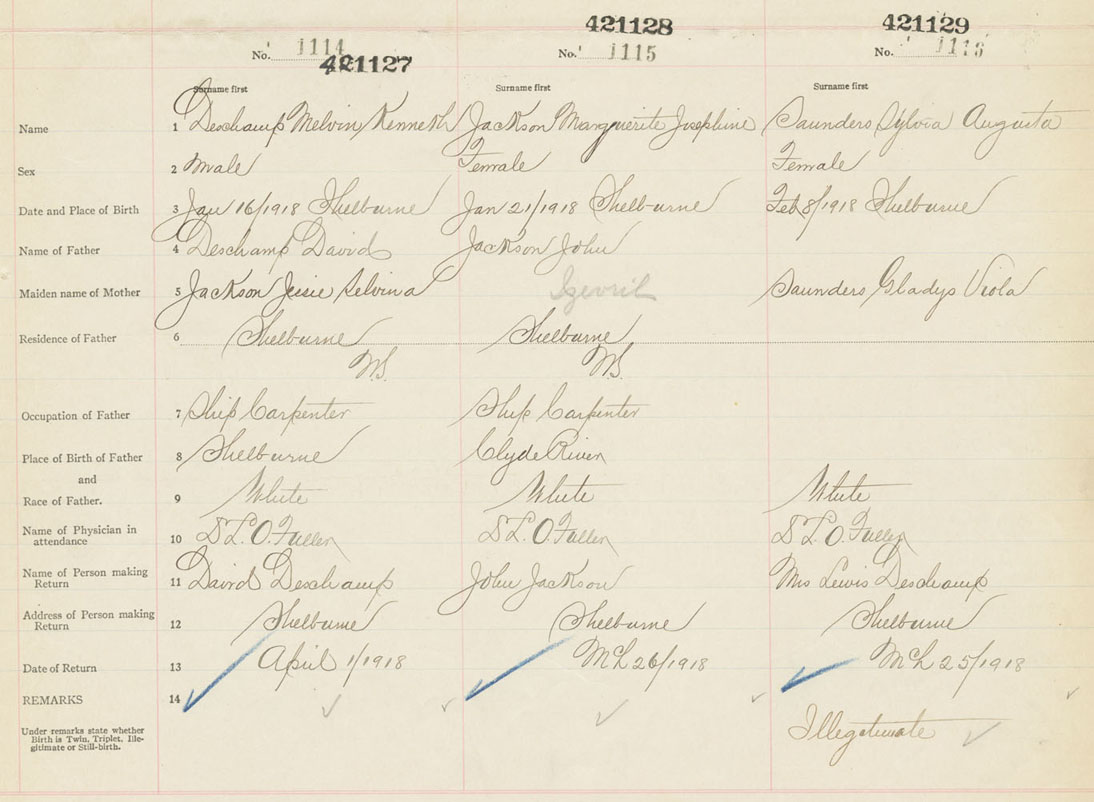 421128 421129
No. 1114 No. 1115 No. 1116
421127
Surname first Surname first Surname first
Name 1 Deschamp Melvin Kenneth Jackson Marguerite Josephine Saunders Sylvia Augusta
Sex 2 Male Female Female
Date and Place of Birth 3 Jan 16/1918 Shelburne Jan 21/1918 Shelburne Feb 8/1918 Shelburne
Name of Father 4 Deschamp David Jackson John
Maiden name of Mother 5 Jackson Jessie Selvina Saunders Gladys Viola
Residence of Father 6 Shelburne Shelburne
N.S. N.S.
Occupation of Father 7 Ship Carpenter Ship Carpenter
Place of Birth of Father 8 Shelburne Clyde River
and
Race of Father. 9 White White White
Name of Physician in
attendance 10 L.O. Fuller L.O. Fuller L.O. Fuller
Name of Person making
Return 11 David Deschamp John Jackson Mrs Lewis Deschamp
Address of Person making
Return 12 Shelburne Shelburne Shelburne
Date of Return 13 April 1/1918 Mch 26/1918 Mch 25/1918
REMARKS 14
Under remarks state whether
Birth is Twin, Triplet, Ille-
gitimate or Still-birth.
Illegetimate